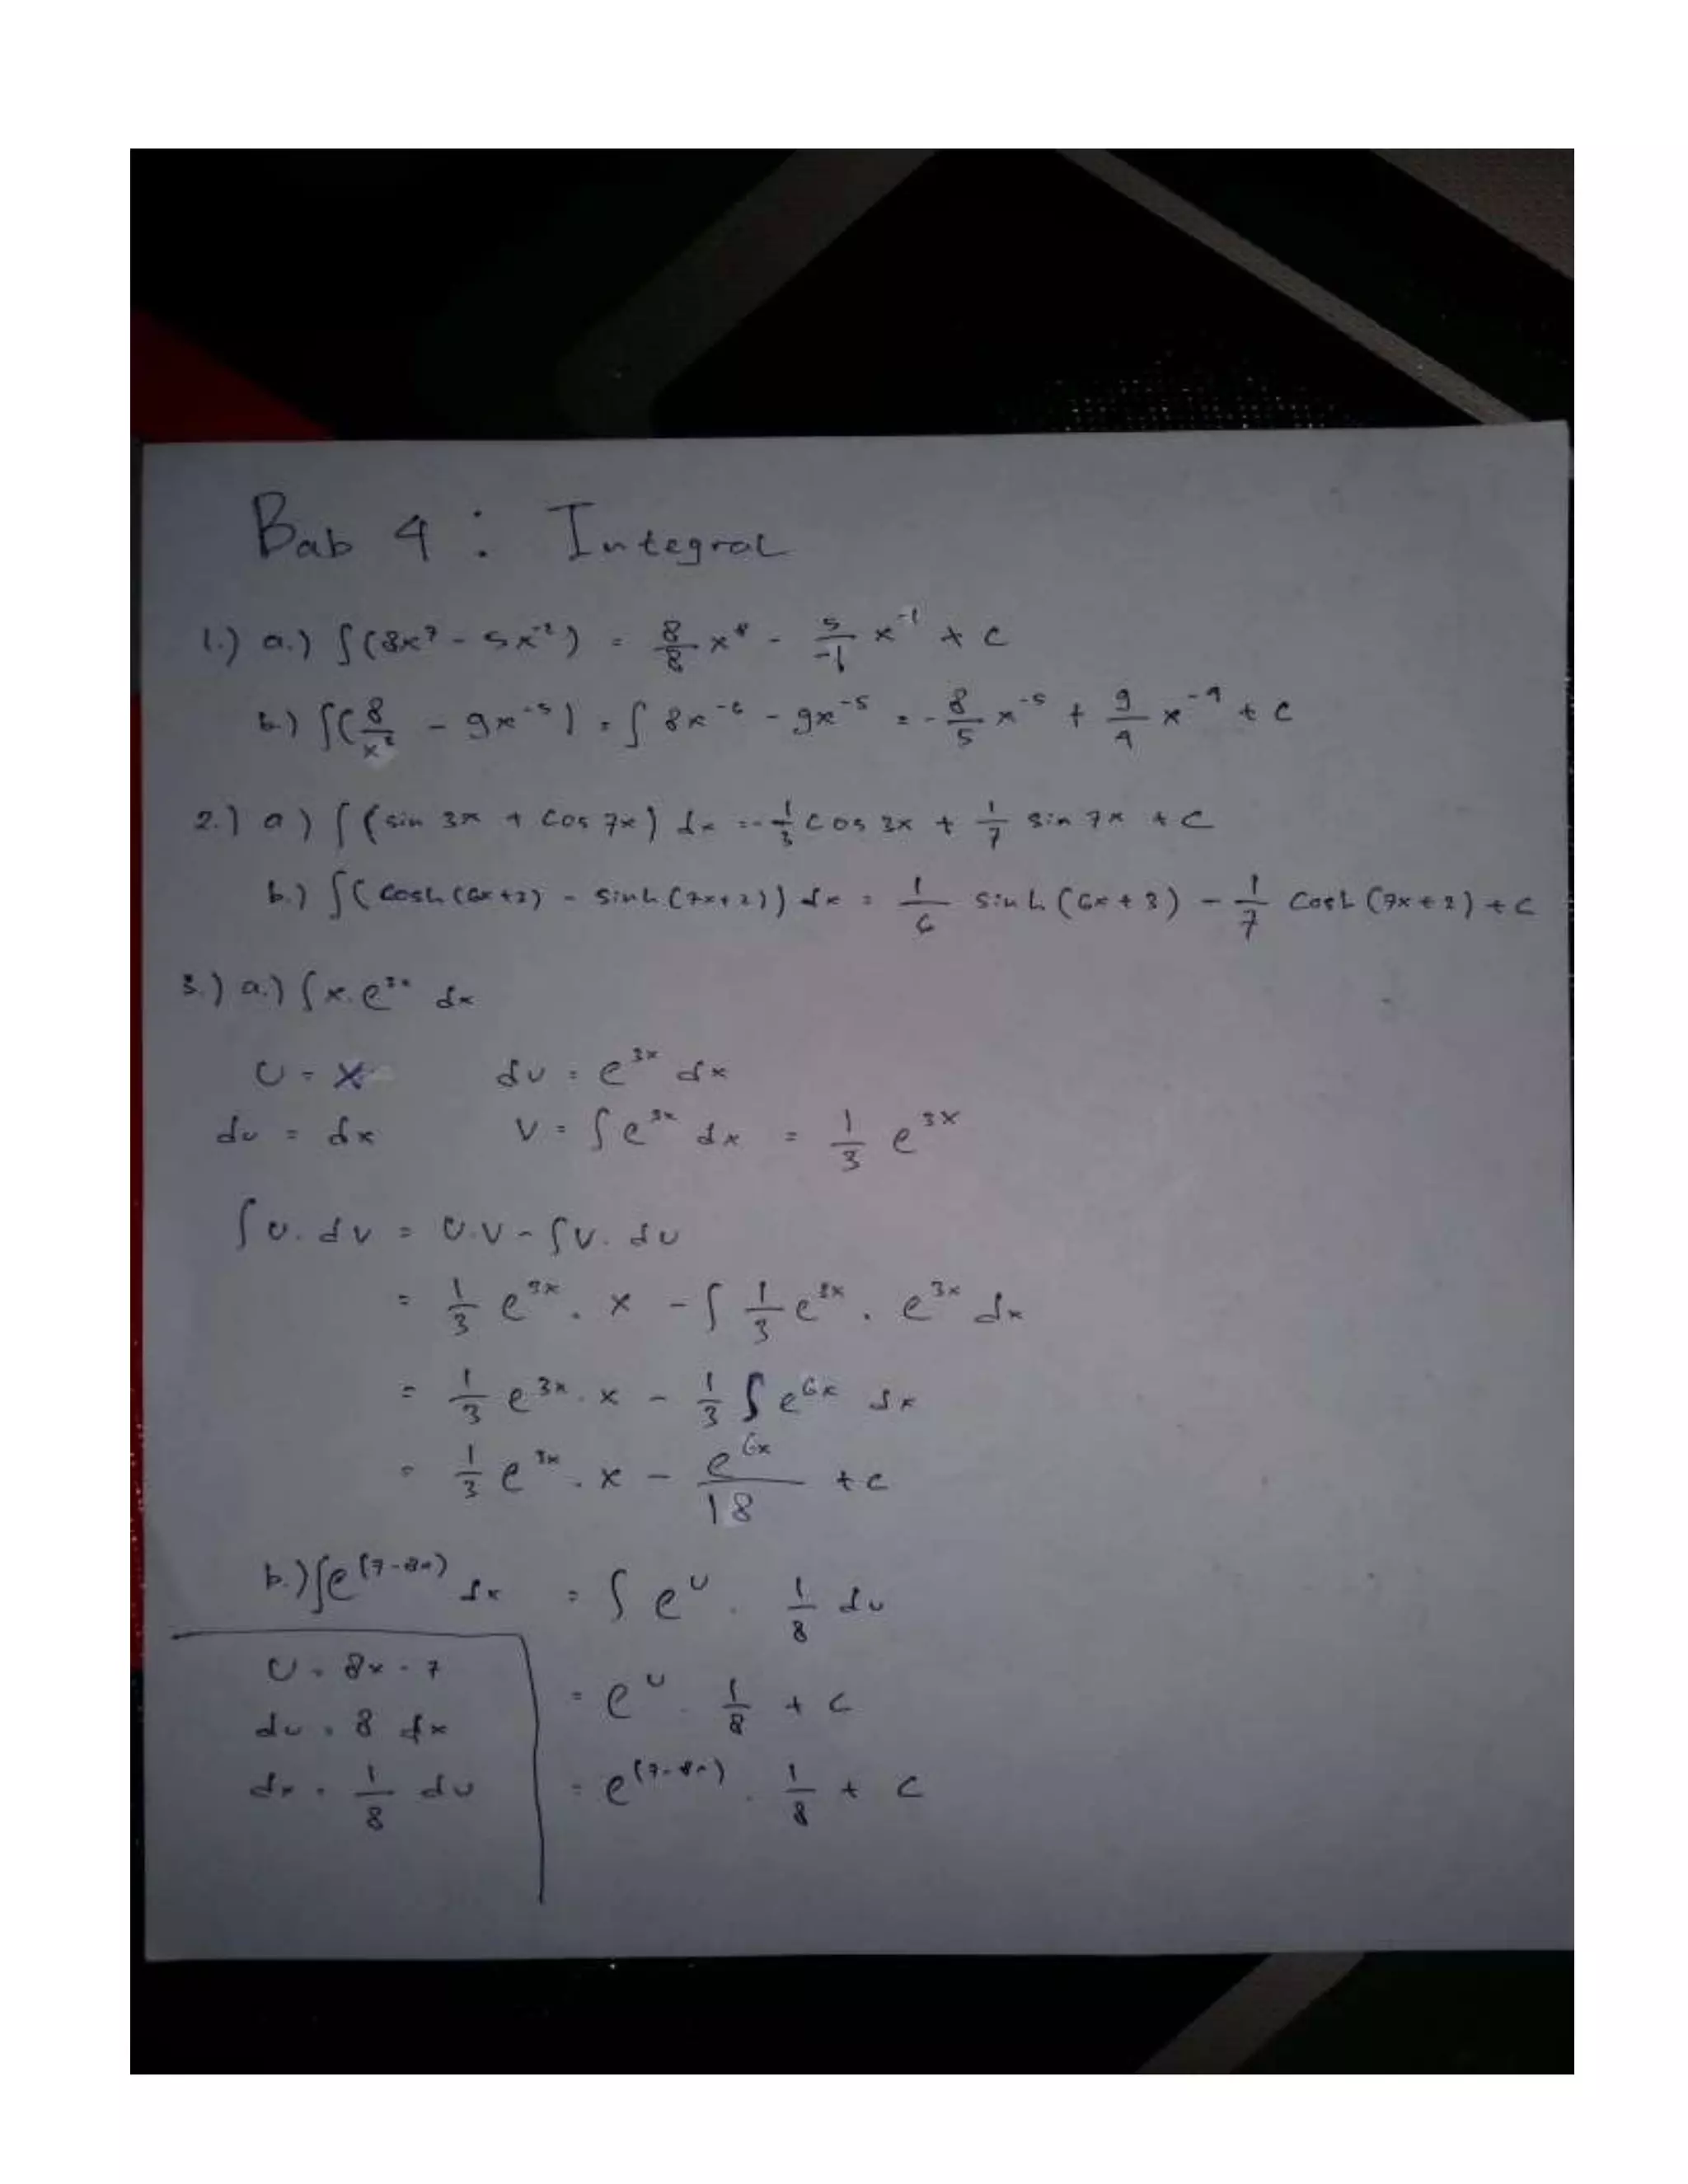 Bab 4 : Integral
1.) a.) ∫(8x⁷ - 5x⁻²) = 8/8 x⁸ - 5/-1 x⁻¹ + C
b.) ∫(8/x⁶ - 9x⁻⁵) = ∫ 8x⁻⁶ - 9x⁻⁵ = - 8/5 x⁻⁵ + 9/4 x⁻⁴ + C
2.) a) ∫(sin 3x + Cos 7x) dx = - 1/3 cos 3x + 1/7 sin 7x + C
b.) ∫(Cosh(6x+3) - Sinh(7x+2)) dx = 1/6 Sinh(6x+3) - 1/7 Cosh(7x+2) + C
3.) a.) ∫x.e³ˣ dx
U = x dv = e³ˣ dx
du = dx V = ∫e³ˣ dx = 1/3 e³ˣ
∫u.dv = U.V - ∫V.du
= 1/3 e³ˣ . x - ∫ 1/3 e³ˣ . e³ˣ dx
= 1/3 e³ˣ . x - 1/3 ∫ e⁶ˣ dx
= 1/3 e³ˣ . x - e⁶ˣ/18 + C
b.) ∫e⁽⁷⁻⁸ˣ⁾ dx = ∫ eᵁ . 1/8 du
U = 8x - 7
= eᵁ . 1/8 + C
du = 8 dx
dx = 1/8 du
= e⁽⁷⁻⁸ˣ⁾ . 1/8 + C